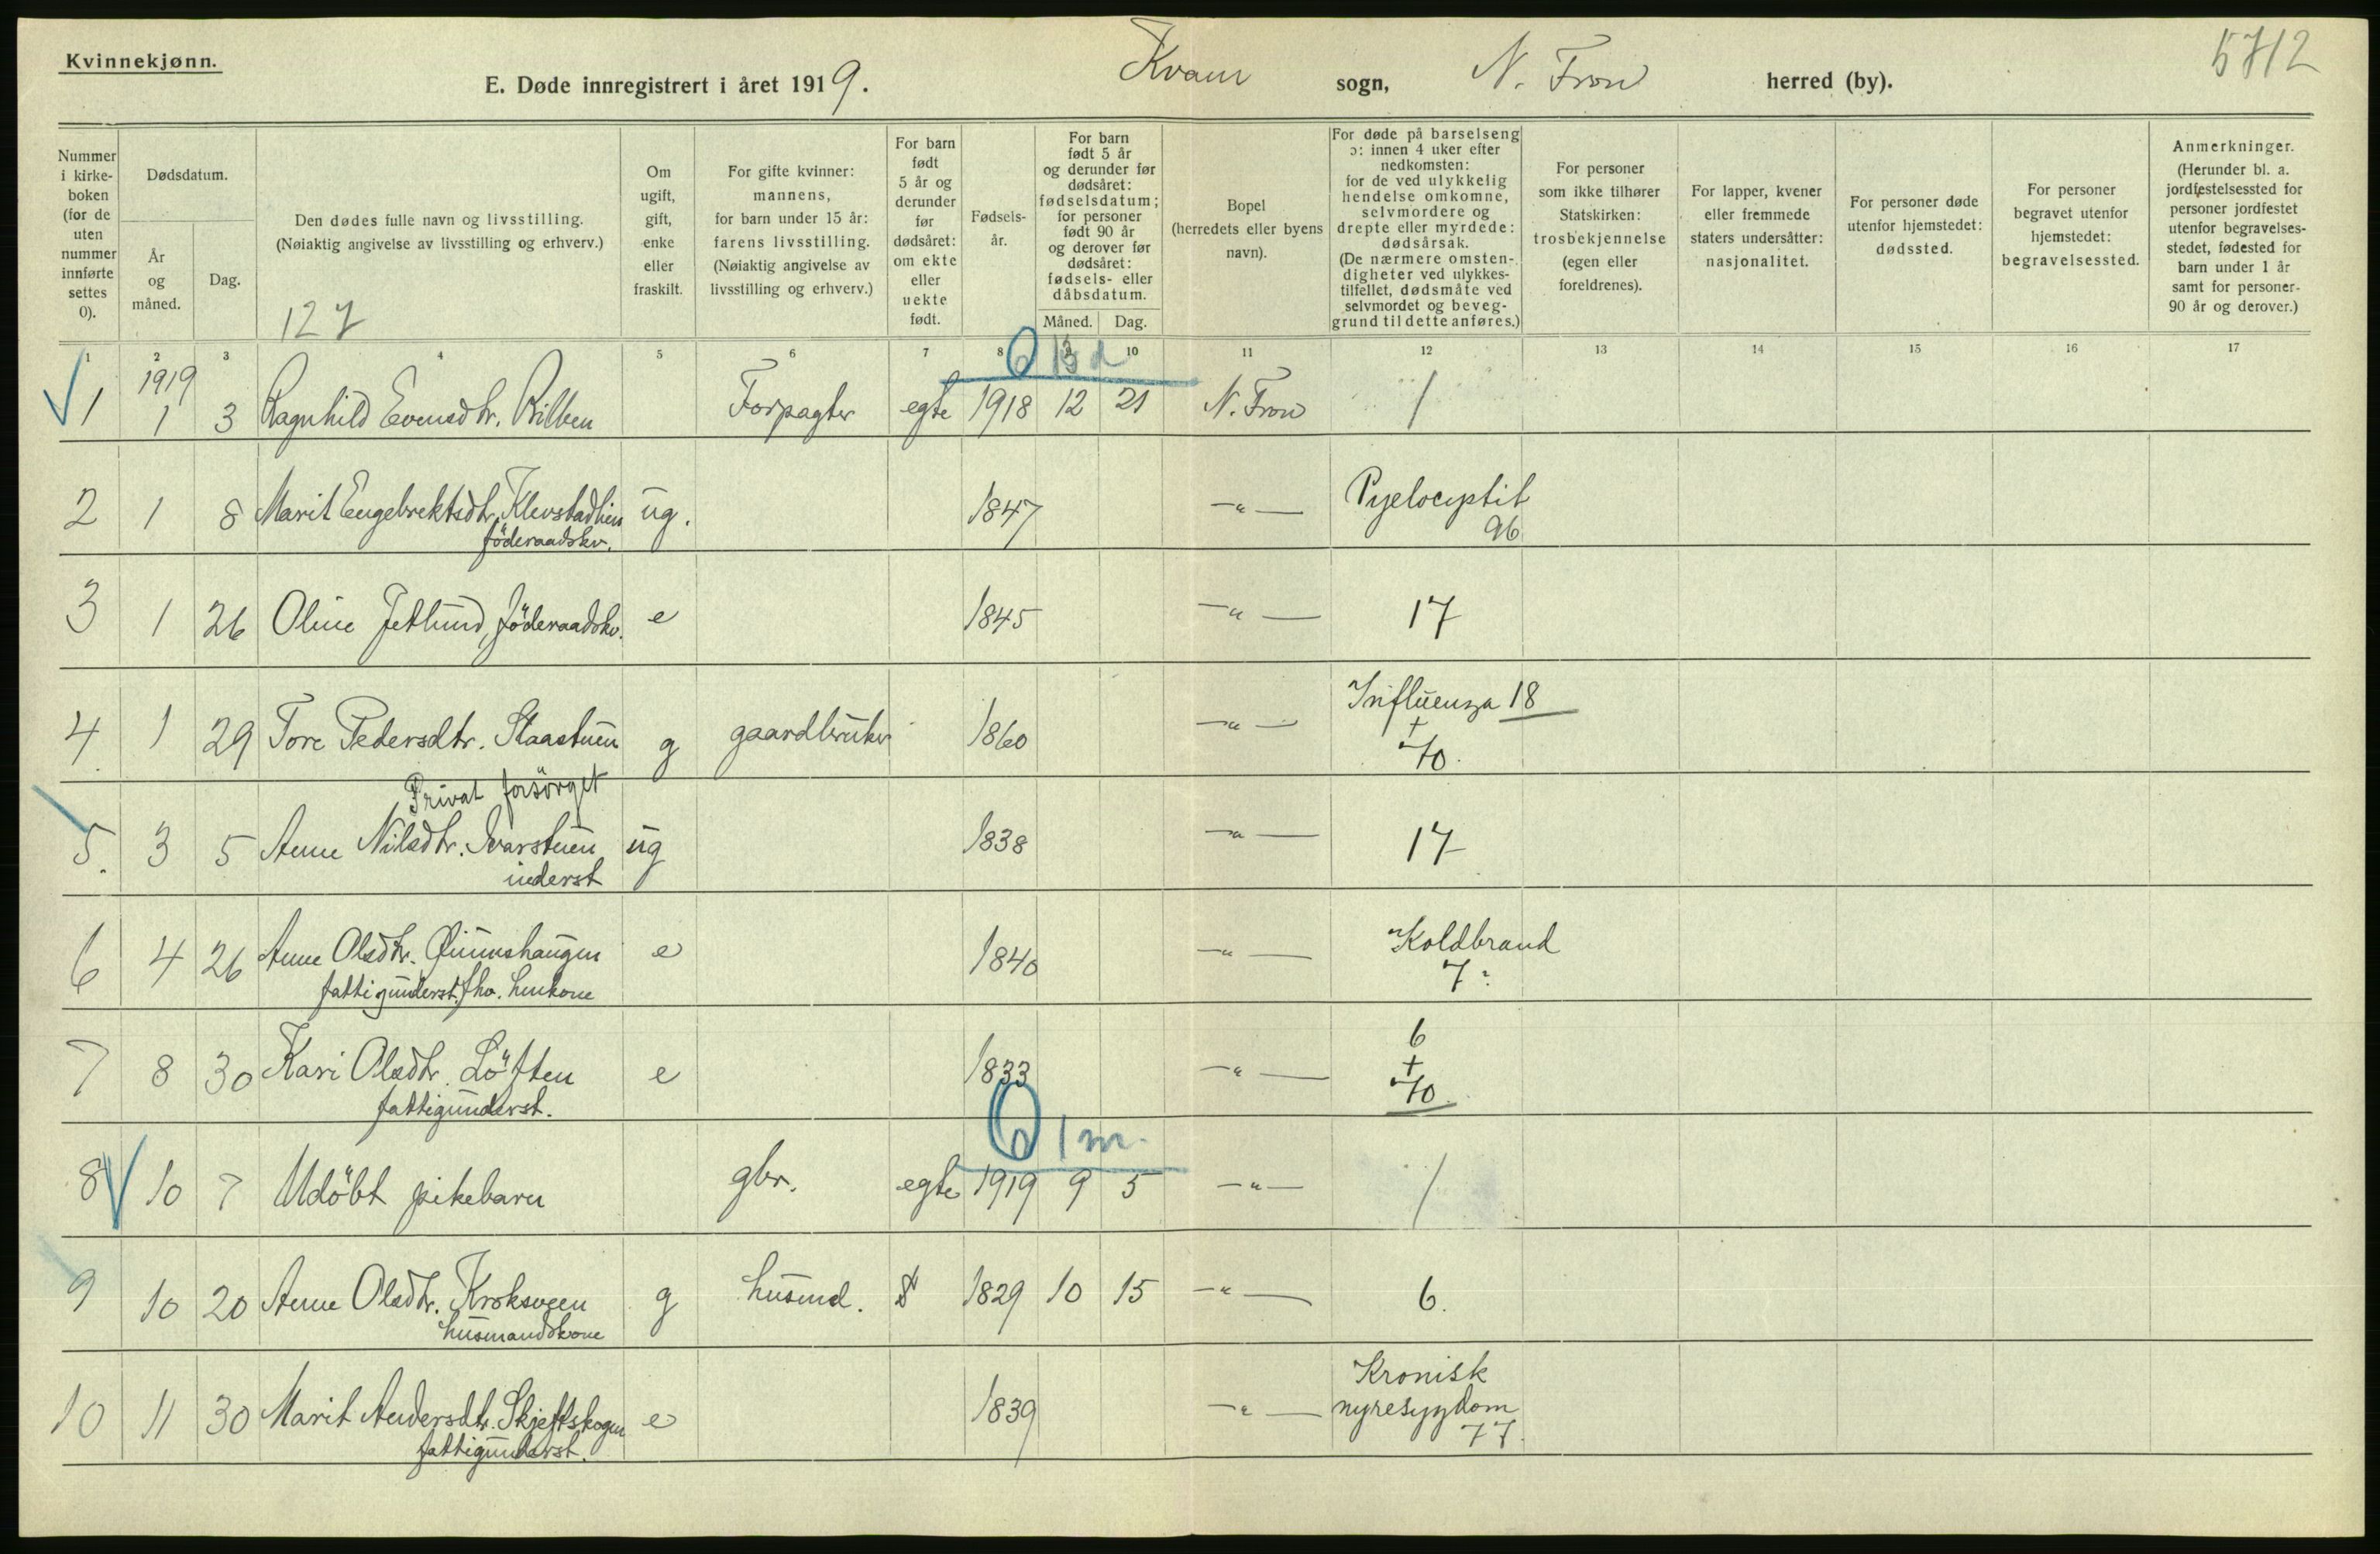 Kvinnekjønn.
E. Døde innregistrert i året 1919. Kvam sogn, N. Fron herred (by).
5712
Nummer i kirke- boken (for de uten nummer innførte settes 0).
Dødsdatum.
År og måned.
Dag.
Den dødes fulle navn og livsstilling.
(Nøiaktig angivelse av livsstilling og erhverv.)
127
Om ugift, gift, enke eller fraskilt.
For gifte kvinner: mannens, for barn under 15 år: farens livsstilling. (Nøiaktig angivelse av livsstilling og erhverv.)
For barn født 5 år og derunder før dødsåret: om ekte eller uekte født.
Fødsels- år.
For barn født 5 år og derunder før dødsåret: fødselsdatum; for personer født 90 år og derover før dødsåret: fødsels- eller dåbsdatum.
Måned. Dag.
Bopel (herredets eller byens navn).
For døde på barselseng ɔ: innen 4 uker efter nedkomsten: for de ved ulykkelig hendelse omkomne, selvmordere og drepte eller myrdede: dødsårsak. (De nærmere omsten- digheter ved ulykkes- tilfellet, dødsmåte ved selvmordet og beveg- grund til dette anføres.)
For personer som ikke tilhører Statskirken: trosbekjennelse (egen eller foreldrenes).
For lapper, kvener eller fremmede staters undersåtter: nasjonalitet.
For personer døde utenfor hjemstedet: dødssted.
For personer begravet utenfor hjemstedet: begravelsessted.
Anmerkninger. (Herunder bl. a. jordfestelsessted for personer jordfestet utenfor begravelses- stedet, fødested for barn under 1 år samt for personer 90 år og derover.)
1 2 3 4 5 6 7 8 9 10 11 12 13 14 15 16 17
1919
0 13 d
1 1 3 Ragnhild Evensdtr. Rilben Forpagter egte 1918 12 21 N. Fron /
2 1 8 Marit Engebrektsdtr. Klevstadlien ug. 1847 -"- Pyelocystit
föderaadskv. 96
3 1 26 Oline Jetlund, föderaadskv. e 1845 -"- 17
Influenza 18
4 1 29 Tore Pedersdtr. Staastuen g gaardbruker 1860 -"- +
70.
Privat forsörget
5. 3 5 Anne Nilsdtr. Ivarstuen ug 1838 -"- 17
inderst
6 4 26 Anne Olsdtr. Qunnshaugen e 1840 -"- Koldbrand
fattigunderst. fho. enkone 7?
6
7 8 30 Kari Olsdtr. Löften e 1833 -"- +
fattigunderst. 70.
0 1 m.
8 10 7 Udöbt pikebarn gbr. egte 1919 9 5 -"- /
9 10 20 Anne Olsdtr. Kroksveen g husmd. 1829 10 15 -"- 6.
husmandskone
Kronisk
10 11 30 Marit Andersdtr. Skjeftskogen e 1839 -"- nyresygdom
fattigunderst. 77.